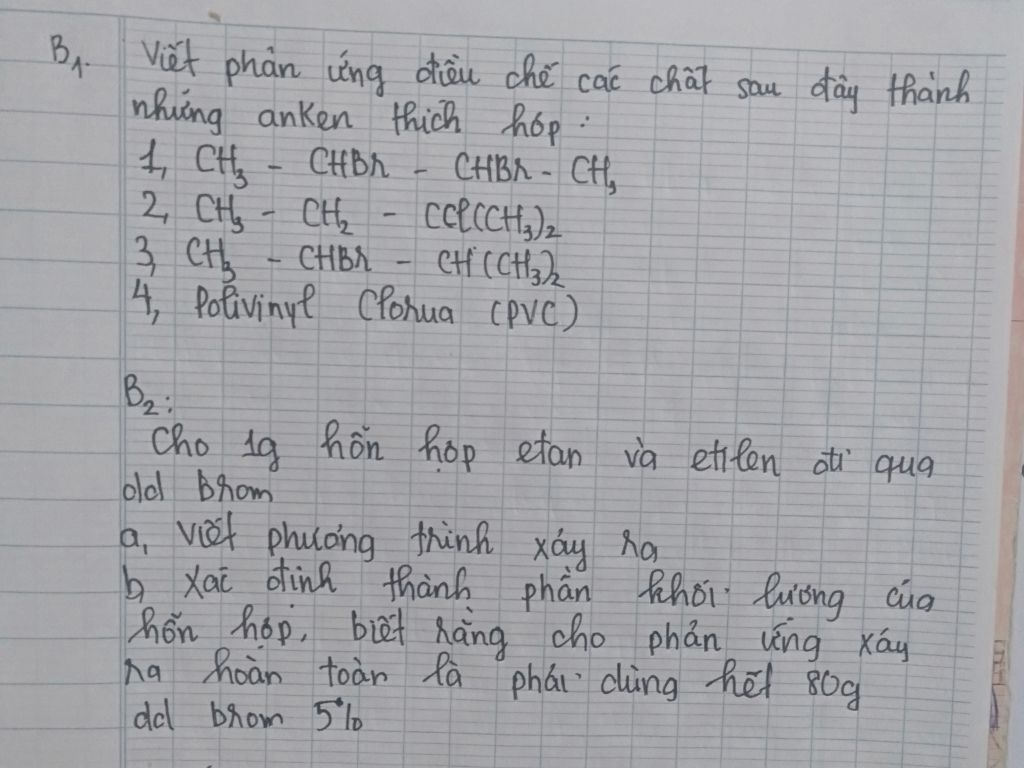 B1. Viết phản ứng điều chế các chất sau đây thành
những anken thích hợp:
1, CH3 - CHBr - CHBr - CH3
2, CH3 - CH2 - CCl(CH3)2
3, CH3 - CHBr - CH(CH3)2
4, Polivinyl Clorua (PVC)
B2:
Cho 1g hỗn hợp etan và etilen đi qua
dd brom
a, Viết phương trình xảy ra
b, Xác định thành phần khối lượng của
hỗn hợp, biết rằng cho phản ứng xảy
ra hoàn toàn là phải dùng hết 80g
dd brom 5%